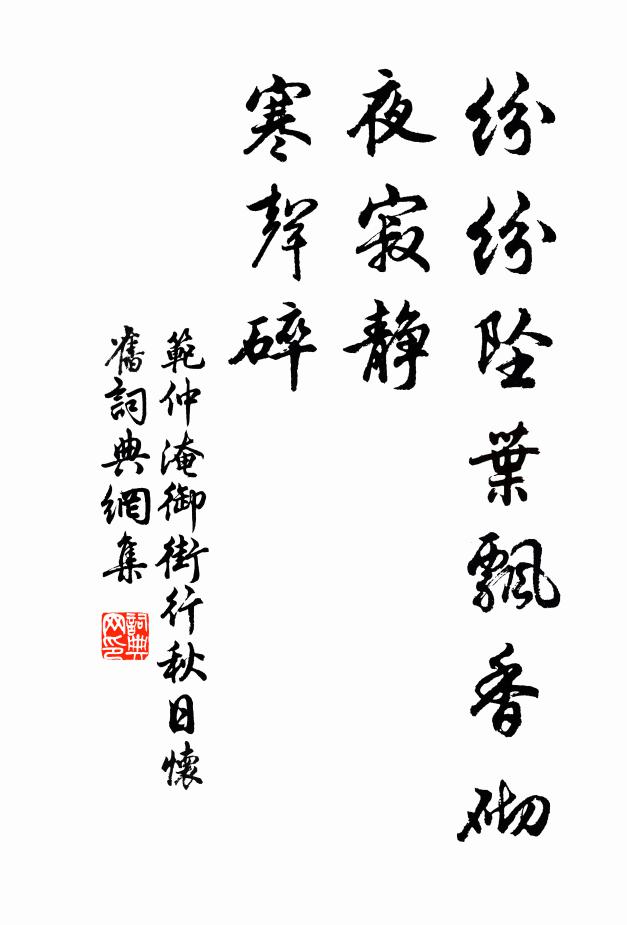 纷纷坠葉飄香砌
夜寂静
寒聲碎
範仲淹御街行秋日懷
舊詞典網集
詞典网印